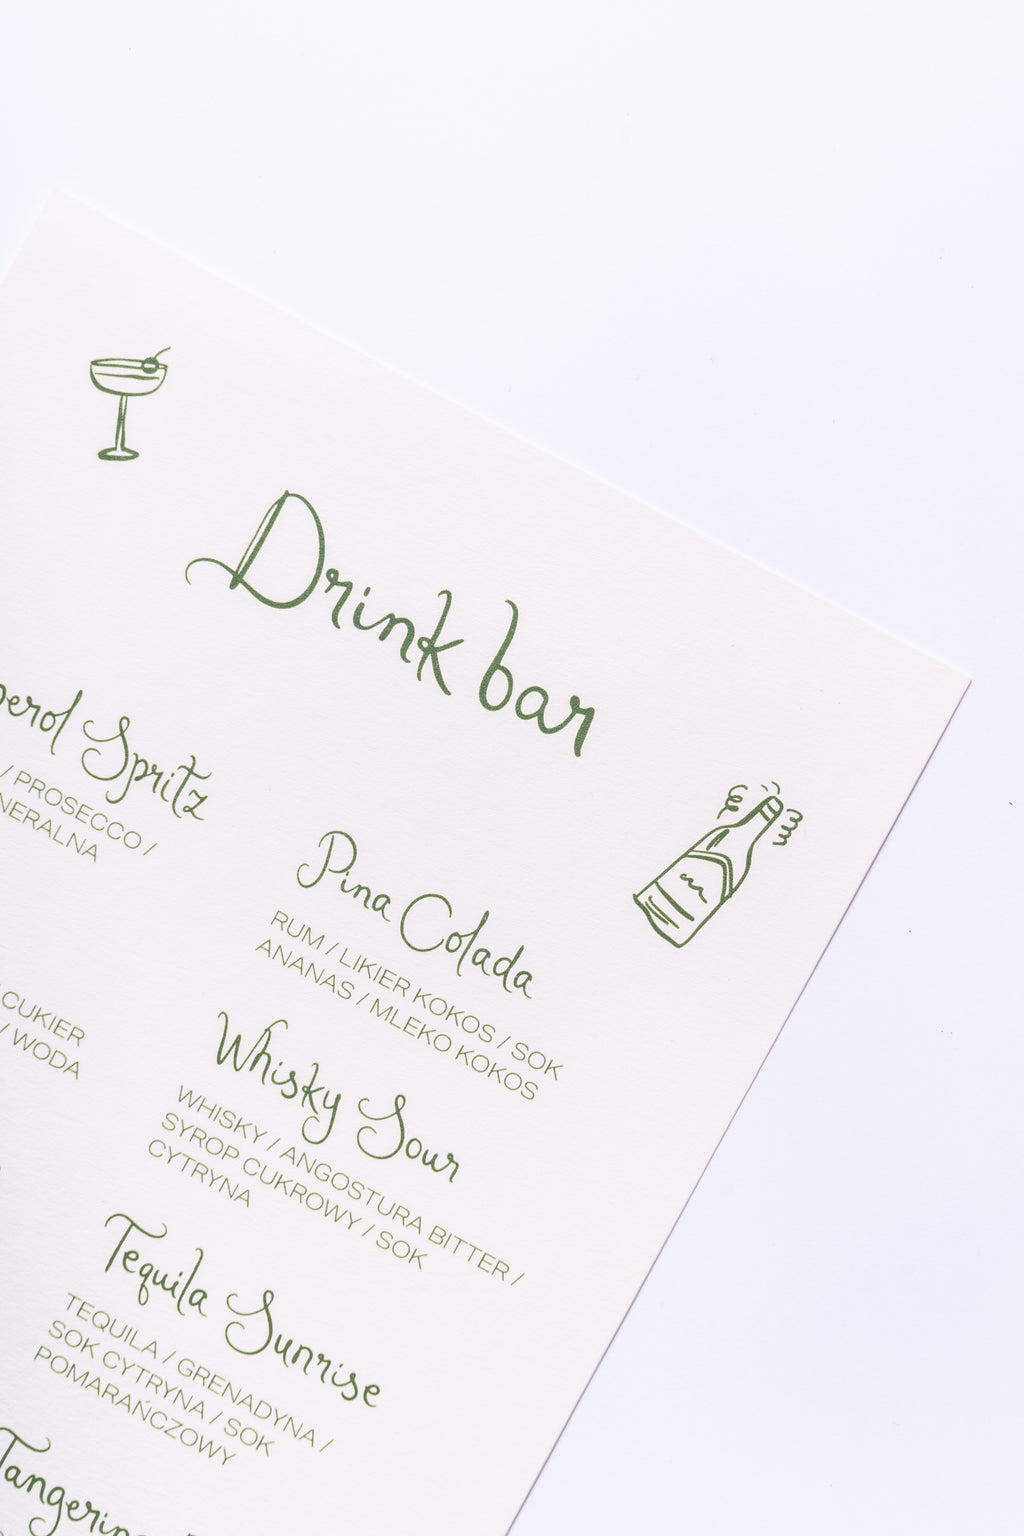 Drink bar
Spritz
/ PROSECCO /
CUKIER
/ WODA
Pina Colada
RUM / LIKIER KOKOS / SOK
ANANAS / MLEKO KOKOS
Whisky Sour
WHISKY / ANGOSTURA BITTER /
SYROP CUKROWY / SOK
CYTRYNA
Tequila Sunrise
TEQUILA / GRENADYNA /
SOK CYTRYNA / SOK
POMARAŃCZOWY